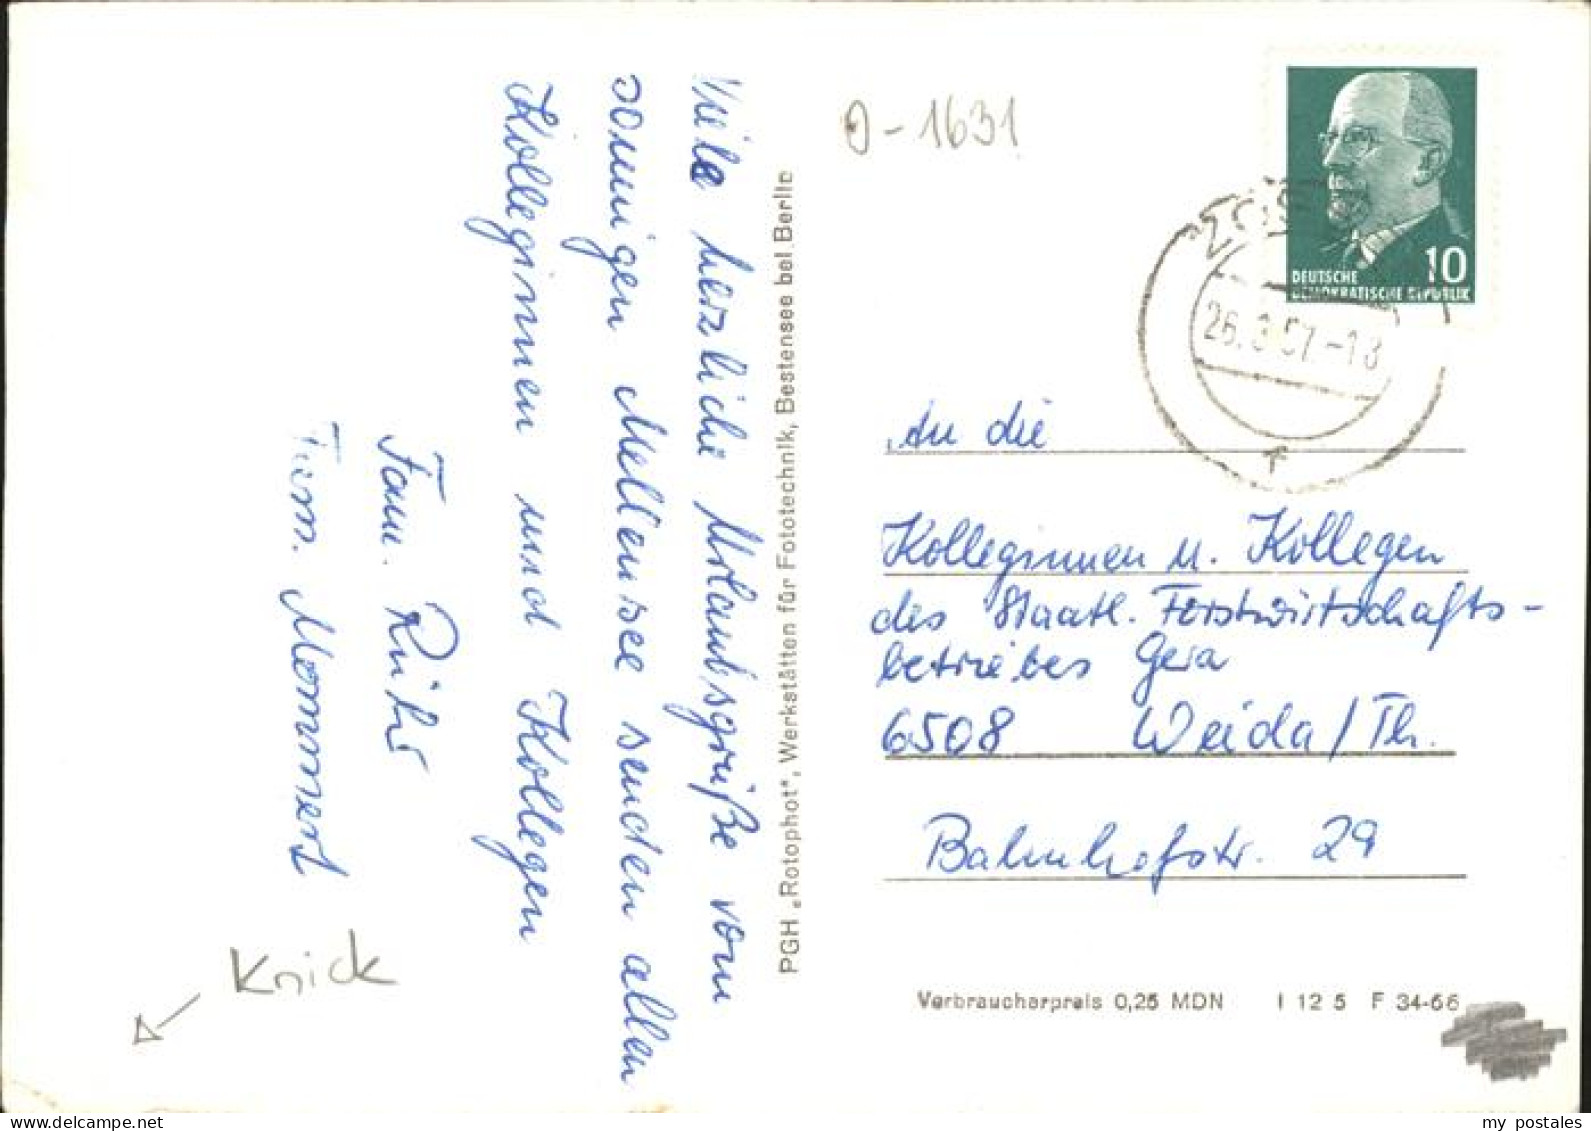 Viele herzliche Urlaubsgrüße vom
sonnigen Mellensee senden allen
Kolleginnen und Kollegen
Fam.
Fam. Mommert
PGH „Rotophot", Werkstätten für Fototechnik, Bestensee bei Berlin
O-1631
10
DEUTSCHE
DEMOKRATISCHE REPUBLIK
An die
Kolleginnen u. Kollegen
des Staatl. Forstwirtschafts-
betriebes Gera
6508 Weida/Th.
Bahnhofstr. 29
Knick
Verbraucherpreis 0,25 MDN I 12 5 F 34-66
my postales